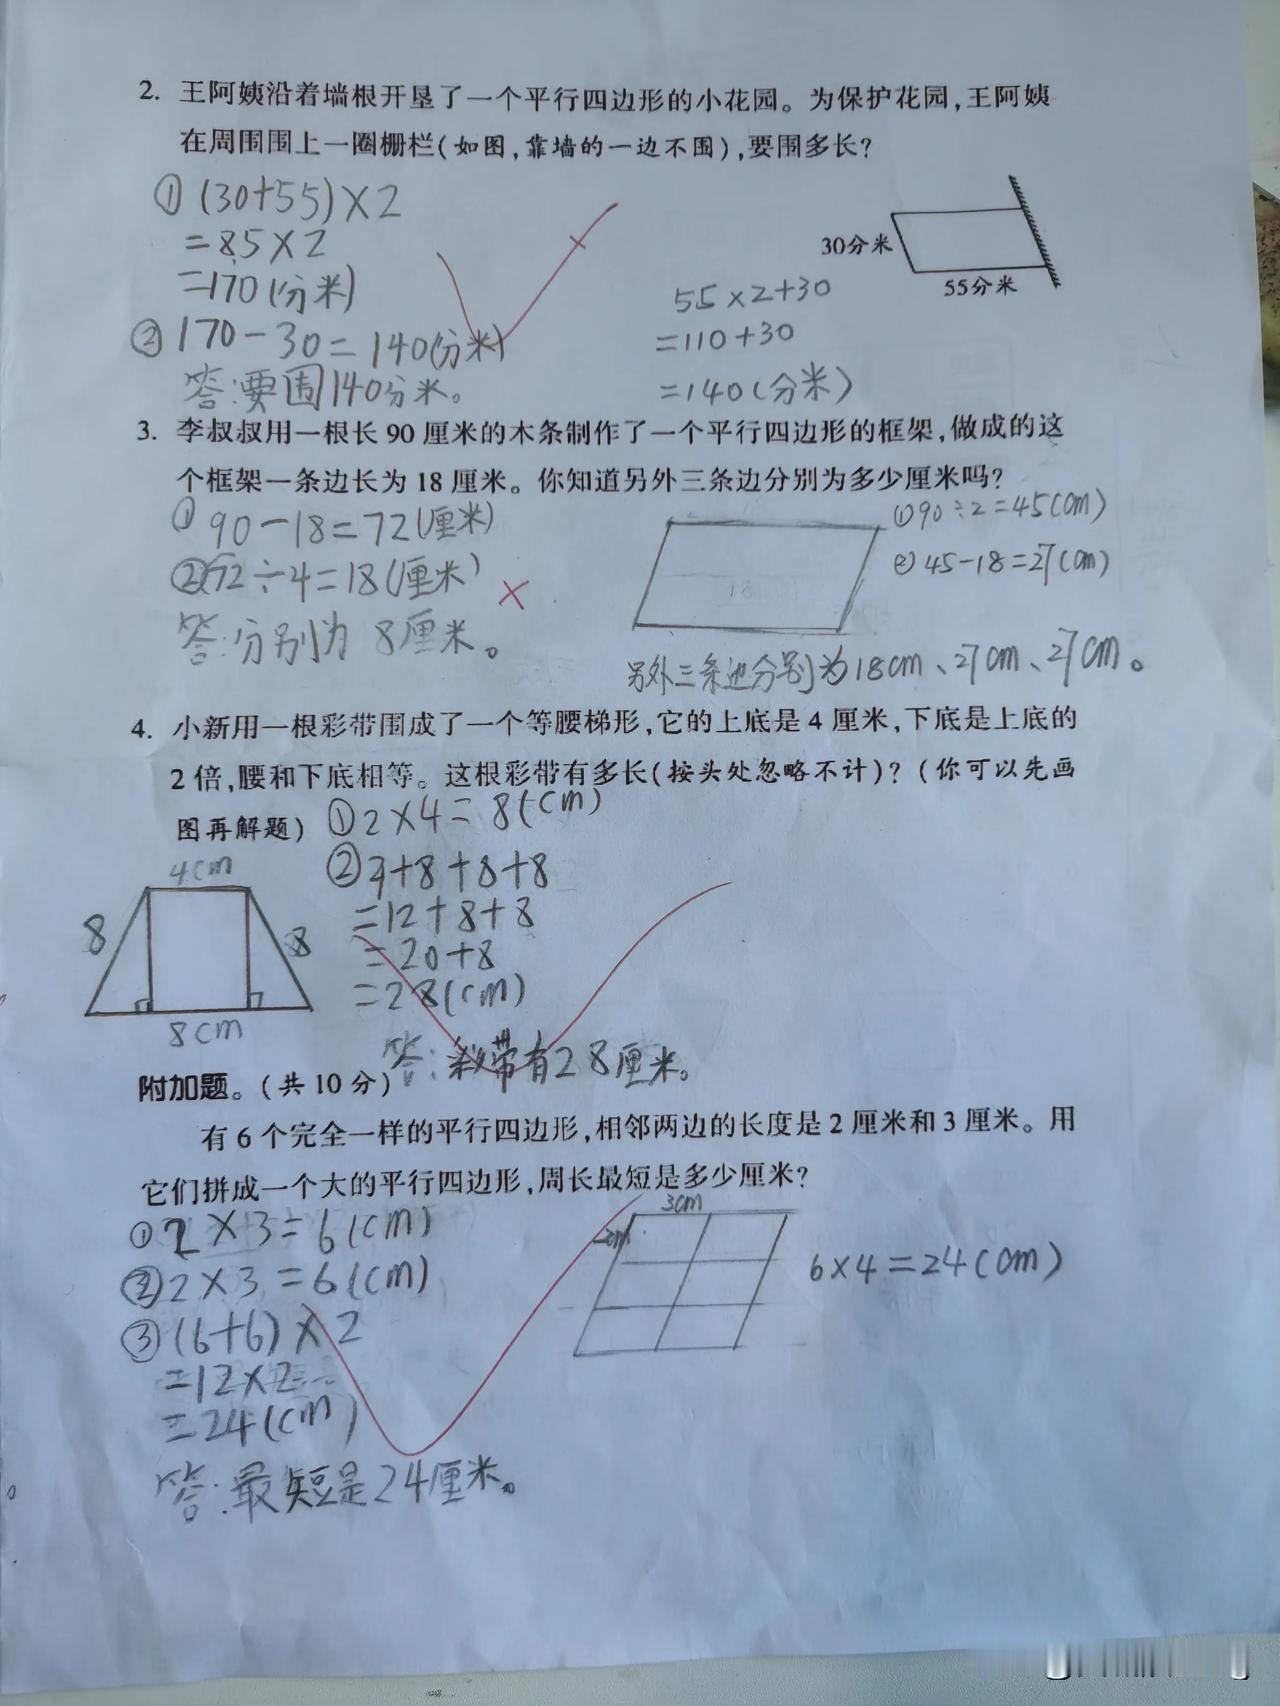 2. 王阿姨沿着墙根开垦了一个平行四边形的小花园。为保护花园,王阿姨
在周围围上一圈栅栏(如图,靠墙的一边不围),要围多长?
①(30+55)×2
=85×2
=170(分米)
②170-30=140(分米)
答:要围140分米。
30分米
55分米
55×2+30
=110+30
=140(分米)
3. 李叔叔用一根长90厘米的木条制作了一个平行四边形的框架,做成的这
个框架一条边长为18厘米。你知道另外三条边分别为多少厘米吗?
①90-18=72(厘米)
②72÷4=18(厘米)
答:分别为8厘米。
①90÷2=45(cm)
②45-18=27(cm)
另外三条边分别为18cm、27cm、27cm。
4. 小新用一根彩带围成了一个等腰梯形,它的上底是4厘米,下底是上底的
2倍,腰和下底相等。这根彩带有多长(按头处忽略不计)?(你可以先画
图再解题)
①2×4=8(cm)
②4+8+8+8
=12+8+8
=20+8
=28(cm)
4cm
8
8
8cm
答:彩带有28厘米。
附加题。(共10分)
有6个完全一样的平行四边形,相邻两边的长度是2厘米和3厘米。用
它们拼成一个大的平行四边形,周长最短是多少厘米?
①2×3=6(cm)
②2×3=6(cm)
③(6+6)×2
=12×2
=24(cm)
答:最短是24厘米。
3cm
2cm
6×4=24(cm)